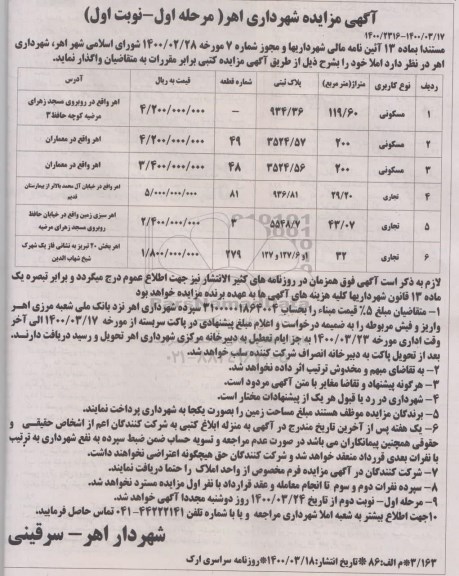 آگهی مزایده شهرداری اهر( مرحله اول-نوبت اول)
۱۴۰۰/۲۳۱۶-۱۴۰۰/۰۳/۱۷
مستندا بماده ۱۳ آئین نامه مالی شهرداریها و مجوز شماره ۷ مورخه ۱۴۰۰/۰۲/۲۸ شورای اسلامی شهر اهر، شهرداری
اهر در نظر دارد املا خود را بشرح ذیل از طریق آگهی مزایده کتبی برابر مقررات به متقاضیان واگذار نماید.
ردیف نوع کاربری متراژ(متر مربع) پلاک ثبتی شماره قطعه قیمت به ریال آدرس
۱ مسکونی ۱۱۹/۶۰ ۹۳۴/۳۶ - ۴/۲۰۰/۰۰۰/۰۰۰ اهر واقع در روبروی مسجد زهرای مرضیه کوچه حافظ۳
۲ مسکونی ۲۰۰ ۳۵۲۴/۵۷ ۴۹ ۴/۲۰۰/۰۰۰/۰۰۰ اهر واقع در معماران
۳ مسکونی ۲۰۰ ۳۵۲۴/۵۶ ۴۸ ۳/۴۰۰/۰۰۰/۰۰۰ اهر واقع در معماران
۴ تجاری ۲۹/۲۰ ۹۳۶/۸۱ ۸۱ ۵/۰۰۰/۰۰۰/۰۰۰ اهر واقع در خیابان آل محمد بالاتر از بیمارستان قدیم
۵ تجاری ۴۳/۰۷ ۵۵۴۸/۷ ۳ ۲/۴۰۰/۰۰۰/۰۰۰ اهر سبزی زمین واقع در خیابان حافظ روبروی مسجد زهرای مرضیه
۶ تجاری ۳۲ ۱او۱۲۷/۶و۱۲۷ ۲۷۹ ۱/۸۰۰/۰۰۰/۰۰۰ اهر بخش ۲۰ تبریز به نشانی فاز یک شهرک شیخ شهاب الدین
لازم به ذکر است آگهی فوق همزمان در روزنامه های کثیر الانتشار نیز جهت اطلاع عموم درج میگردد و برابر تبصره یک
ماده ۱۳ قانون شهرداریها کلیه هزینه های آگهی ها به عهده برنده مزایده خواهد بود
۱- متقاضیان مبلغ ۵٪ قیمت مبناء را بحساب ۳۱۰۰۰۰۱۸۶۴۰۰۴ سپرده شهرداری اهر نزد بانک ملی شعبه مرزی اهر
واریز و فیش مربوطه را به ضمیمه درخواست و اعلام مبلغ پیشنهادی در پاکت سربسته از مورخه ۱۴۰۰/۰۳/۱۷ الی آخر
وقت اداری مورخه ۱۴۰۰/۰۳/۲۳ به جز ایام تعطیل به دبیرخانه مرکزی شهرداری اهر تحویل و رسید دریافت دارند.
بعد از تحویل پاکت به دبیرخانه انصراف شرکت کننده سلب خواهد شد.
۲- به تقاضای مبهم و مخدوش ترتیب اثر داده نخواهد شد.
۳- هرگونه پیشنهاد و تقاضا مغایر با متن آگهی مردود است.
۴- شهرداری در رد یا قبول هر یک از پیشنهادات مختار است.
۵- برندگان مزایده موظف هستند مبلغ مساحت زمین را بصورت یکجا به شهرداری پرداخت نمایند.
۶- یک هفته پس از آخرین تاریخ مندرج در آگهی به منزله ابلاغ کتبی به شرکت کنندگان اعم از اشخاص حقیقی و
حقوقی همچنین پیمانکاران می باشد در صورت عدم مراجعه و تسویه حساب ضمن ضبط سپرده به نفع شهرداری به ترتیب
با نفرات بعدی قرارداد منعقد خواهد شد و شرکت کنندگان حق هیچگونه اعتراضی نخواهند داشت.
۷- شرکت کنندگان در آگهی مزایده فرم مخصوص از واحد املاک را حتما دریافت نمایند.
۸- سپرده نفرات دوم و سوم تا انجام معامله و عقد قرارداد با نفر اول مزایده مسترد نخواهد شد.
۹- مرحله اول- نوبت دوم از تاریخ ۱۴۰۰/۰۳/۲۴ روز دوشنبه مجددا آگهی خواهد شد.
۱۰جهت اطلاع بیشتر به شعبه املا شهرداری مراجعه و یا با شماره تلفن ۴۴۲۲۲۱۴۱-۰۴۱ تماس حاصل فرمایید.
شهردار اهر- سرقینی
۳/۱۶۳*م الف:۸۶* تاریخ انتشار:۱۴۰۰/۰۳/۱۸*روزنامه سراسری ارک